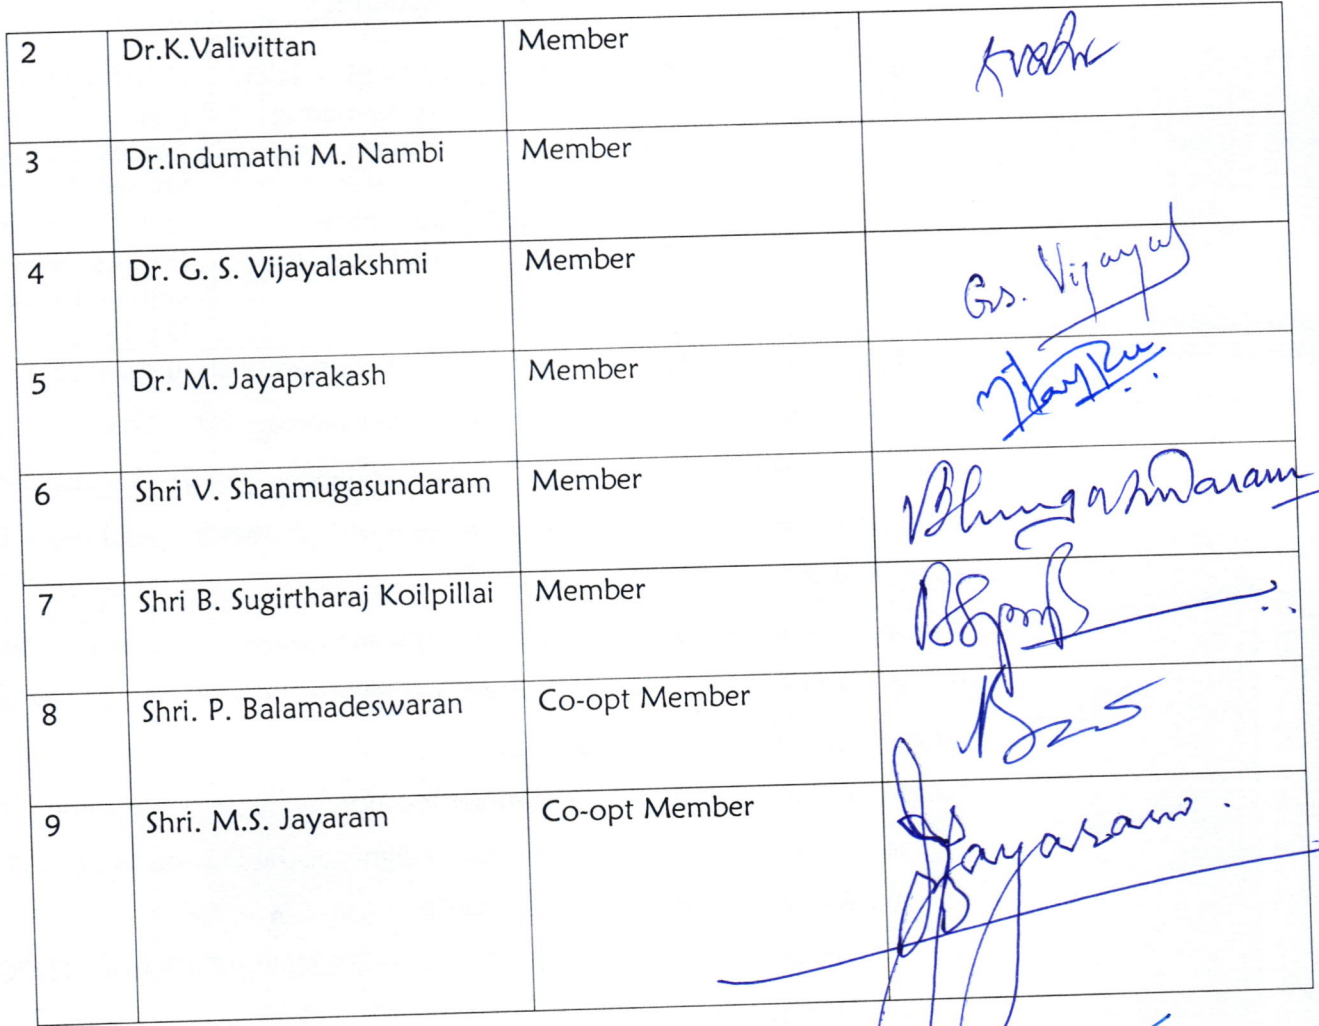 2 Dr.K.Valivittan Member
3 Dr.Indumathi M. Nambi Member
4 Dr. G. S. Vijayalakshmi Member Gs. Vijayal
5 Dr. M. Jayaprakash Member
6 Shri V. Shanmugasundaram Member
7 Shri B. Sugirtharaj Koilpillai Member
8 Shri. P. Balamadeswaran Co-opt Member
9 Shri. M.S. Jayaram Co-opt Member Jayaram